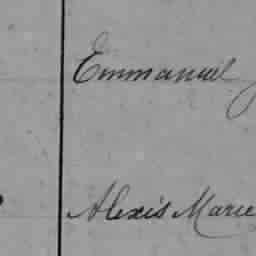 Emmanuel
Alexis Marie